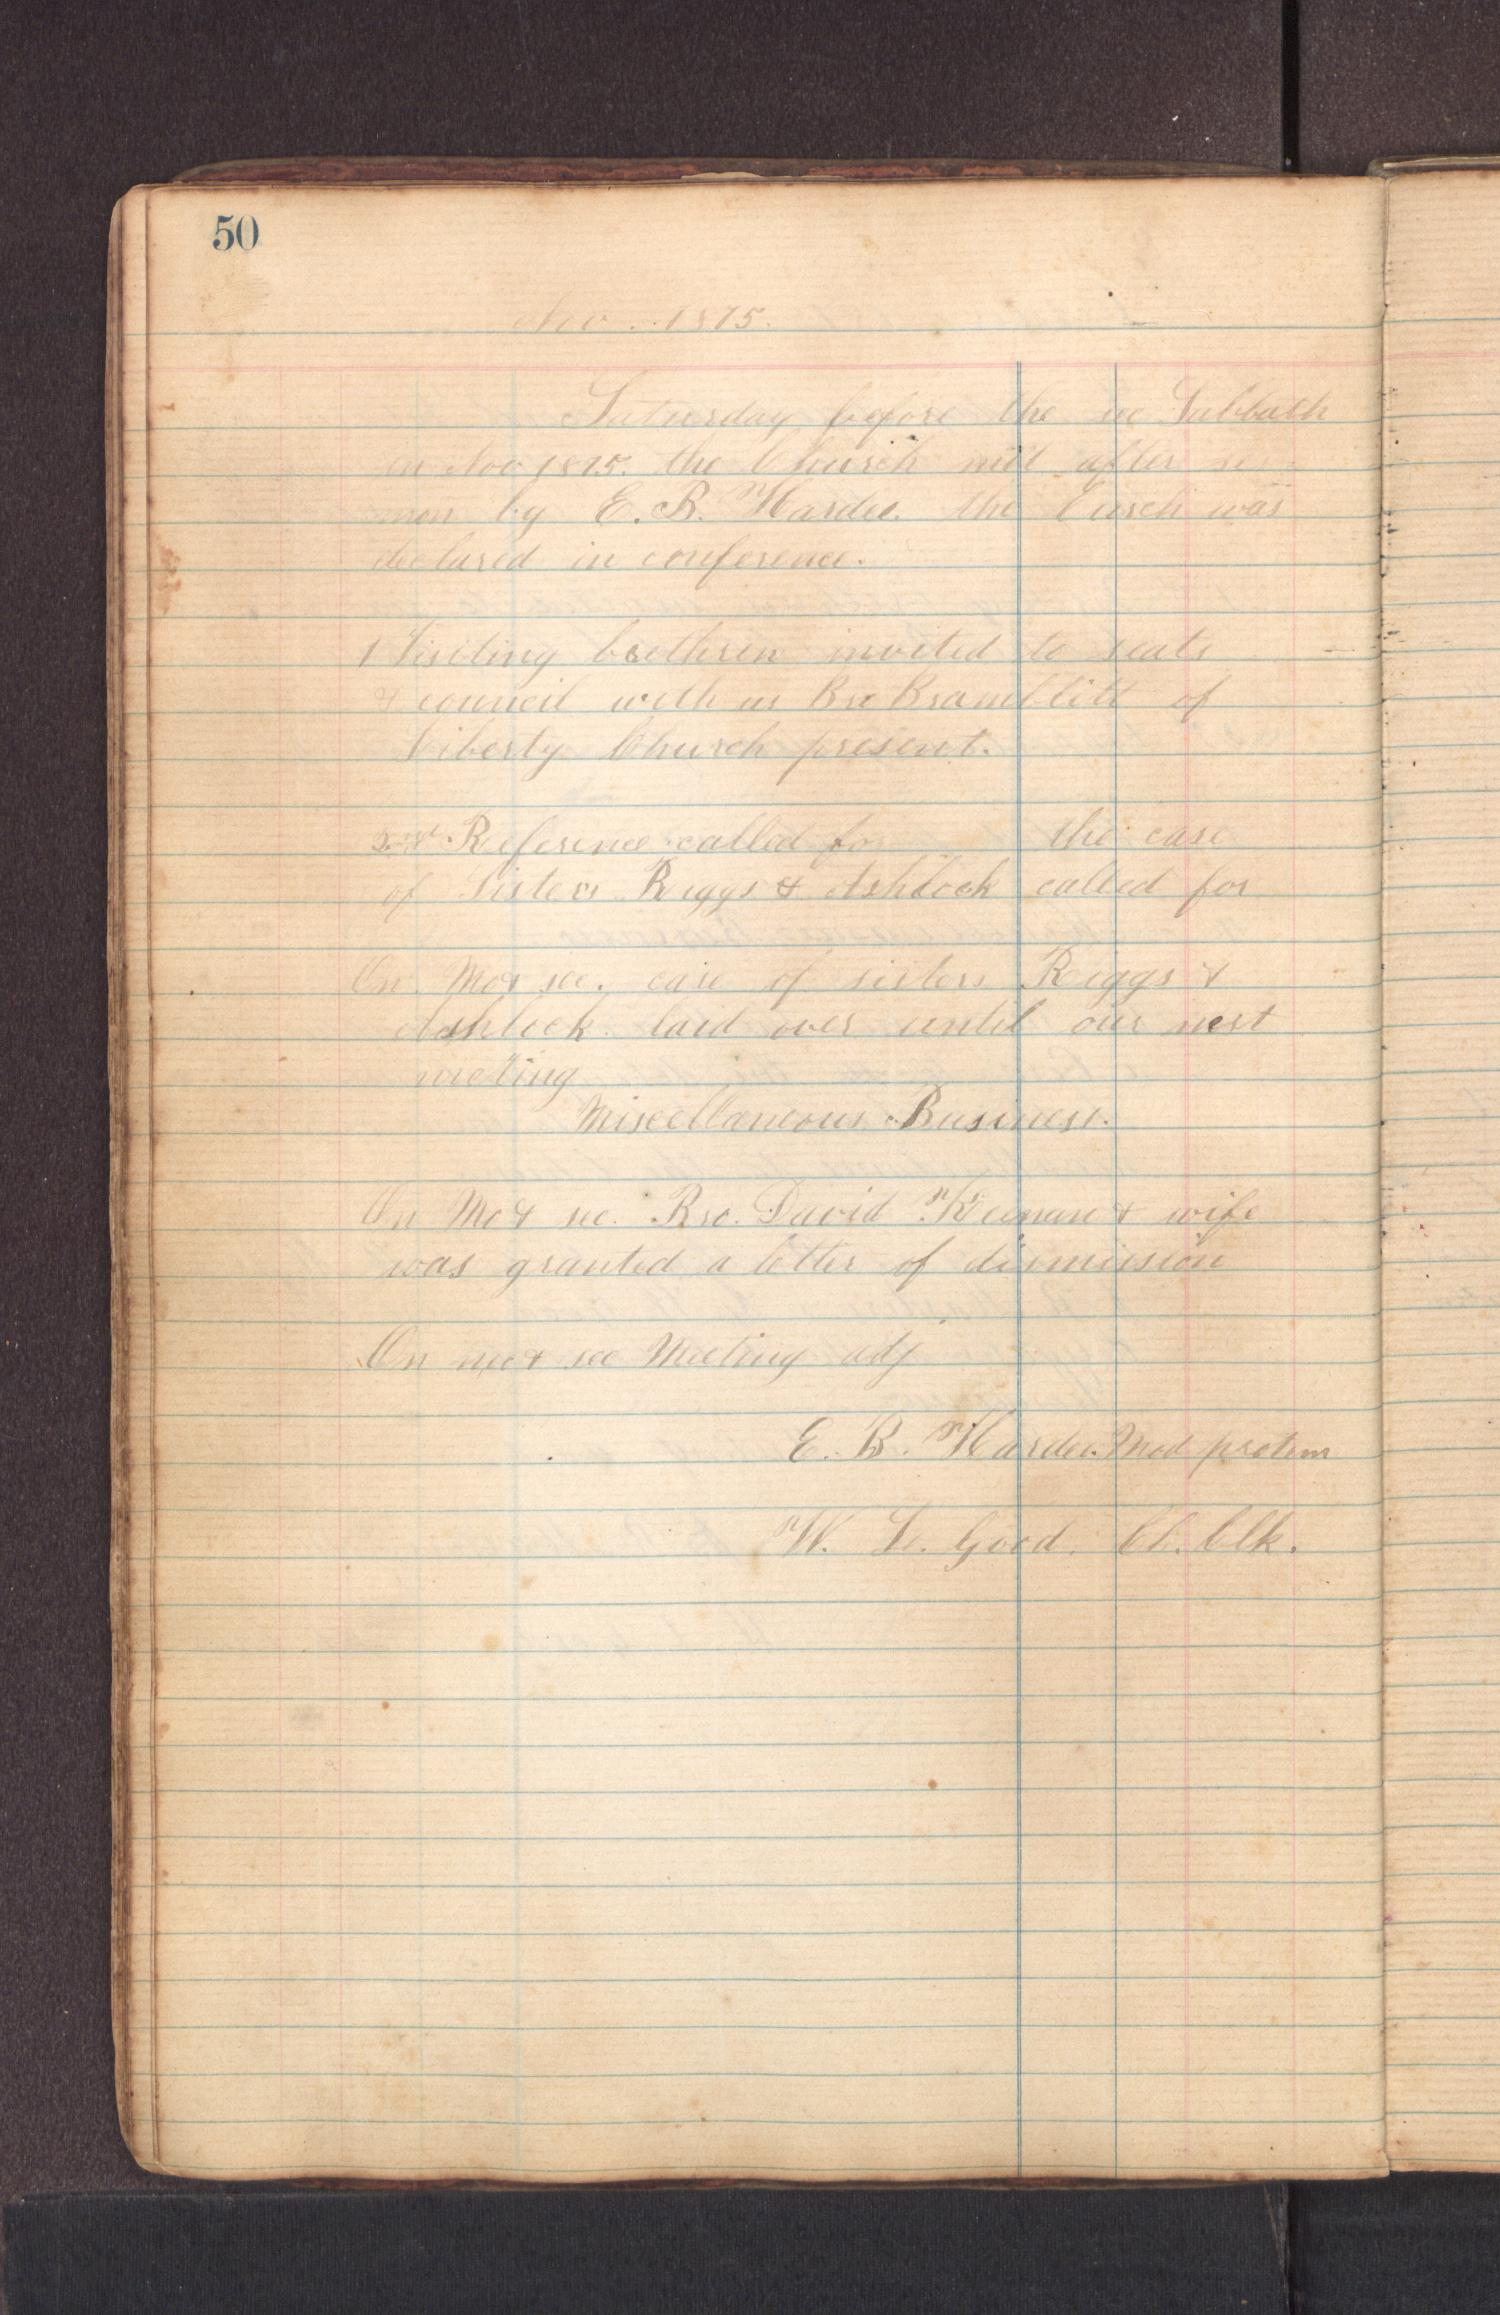 50
Nov. 1875.
Saturday before the Sabbath
in Nov 1875. the Church mett after ser-
mon by E. B. Hardee. the Curch was
declared in conference.
1 Visiting brethren invited to seats
& council with us Bro Bramblitt of
Liberty Church present.
2nd Reference called for the case
of Sisters Riggs & Ashlock called for
On Mo & sec. case of sisters Riggs &
Ashlock laid over until our next
meeting
Miscellaneous Business.
On Mo & sec. Bro. David Keenan & wife
was granted a letter of dismission
On mo & sec Meeting adj
E. B. Hardee. Mod protem
W. L. Good. Ch. Clk.